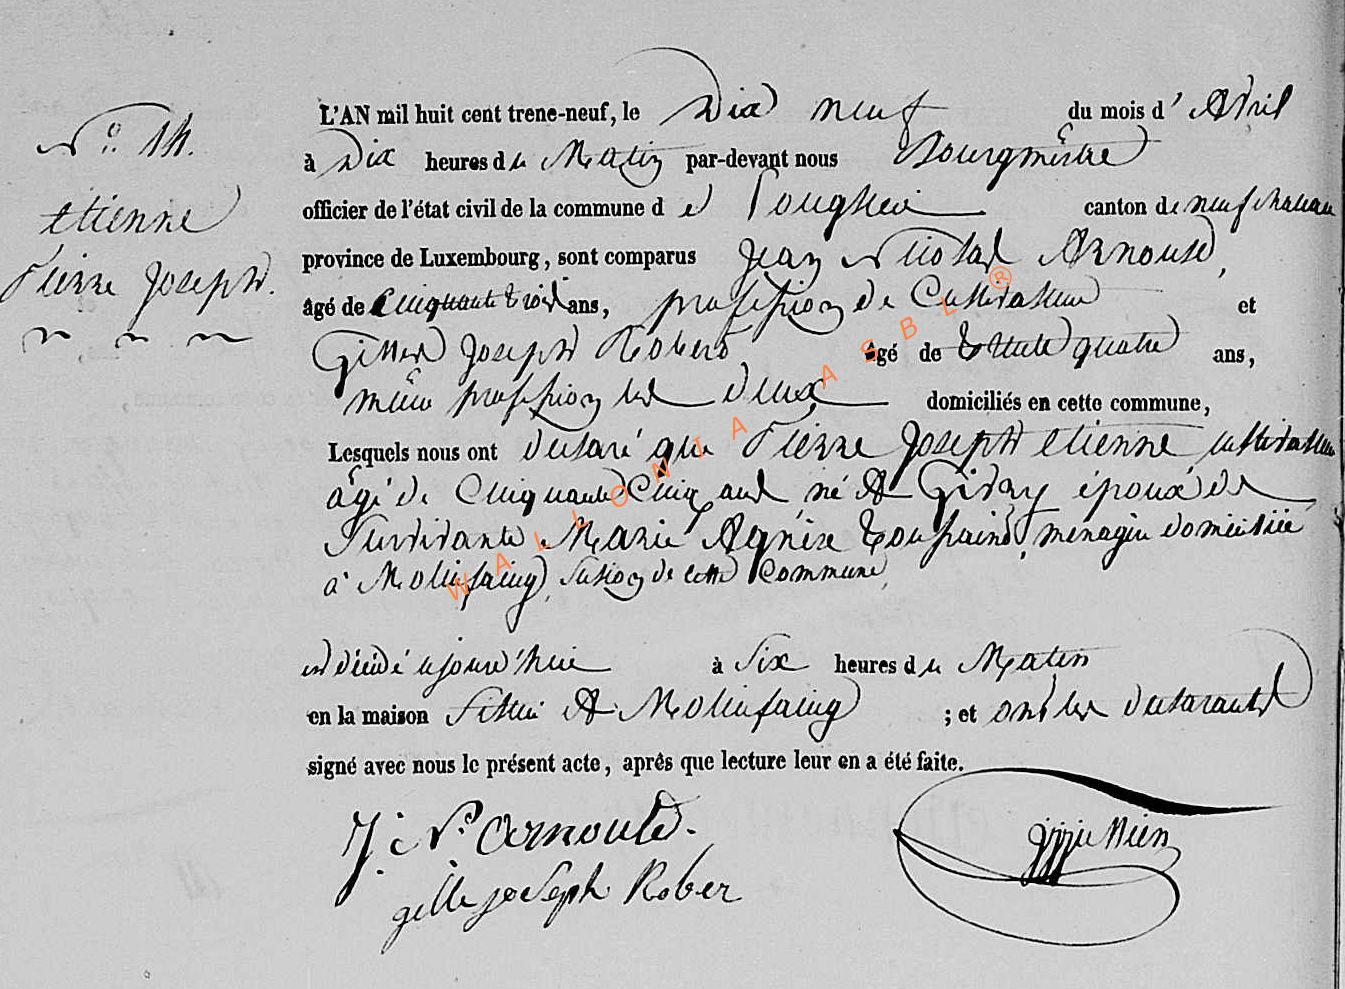 N.° 14.
etienne
Pierre Joseph.
L'AN mil huit cent trene-neuf, le Dix neuf du mois d' Avril
à Dix heures du Matin par-devant nous Bourgmestre
officier de l'état civil de la commune d e canton de neufchateau
province de Luxembourg, sont comparus Jean Nicolas Arnould,
âgé de Cinquante trois ans, profession de Cultivateur et
Gilles Joseph Robert âgé de trente quatre ans,
même profession les deux domiciliés en cette commune,
Lesquels nous ont declaré que Pierre Joseph etienne cultivateur
âgé de Cinquante Cinq ans, né A Givry époux de
Survivante Marie Agnès toussaint, menagere domiciliée
à Molinfaing, section de cette Commune,
est décédé ajourd'hui à Six heures du Matin
en la maison Sittuée A Molinfaing ; et ont les declarants
signé avec nous le présent acte, après que lecture leur en a été faite.
J. N. Arnould.
gille joseph Rober
WALLONIA ASBL ®